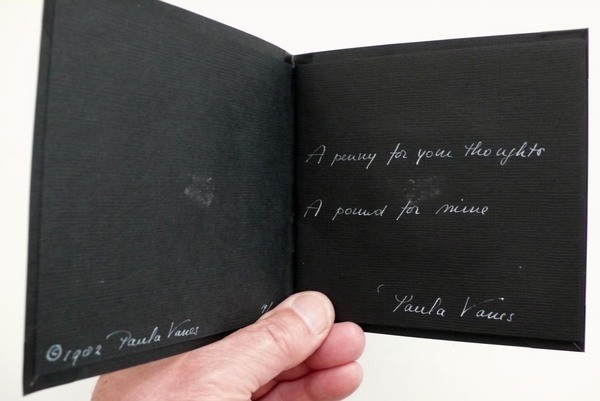 © 1982 Paula Vanes
A penny for your thoughts
A pound for mine
Paula Vanes